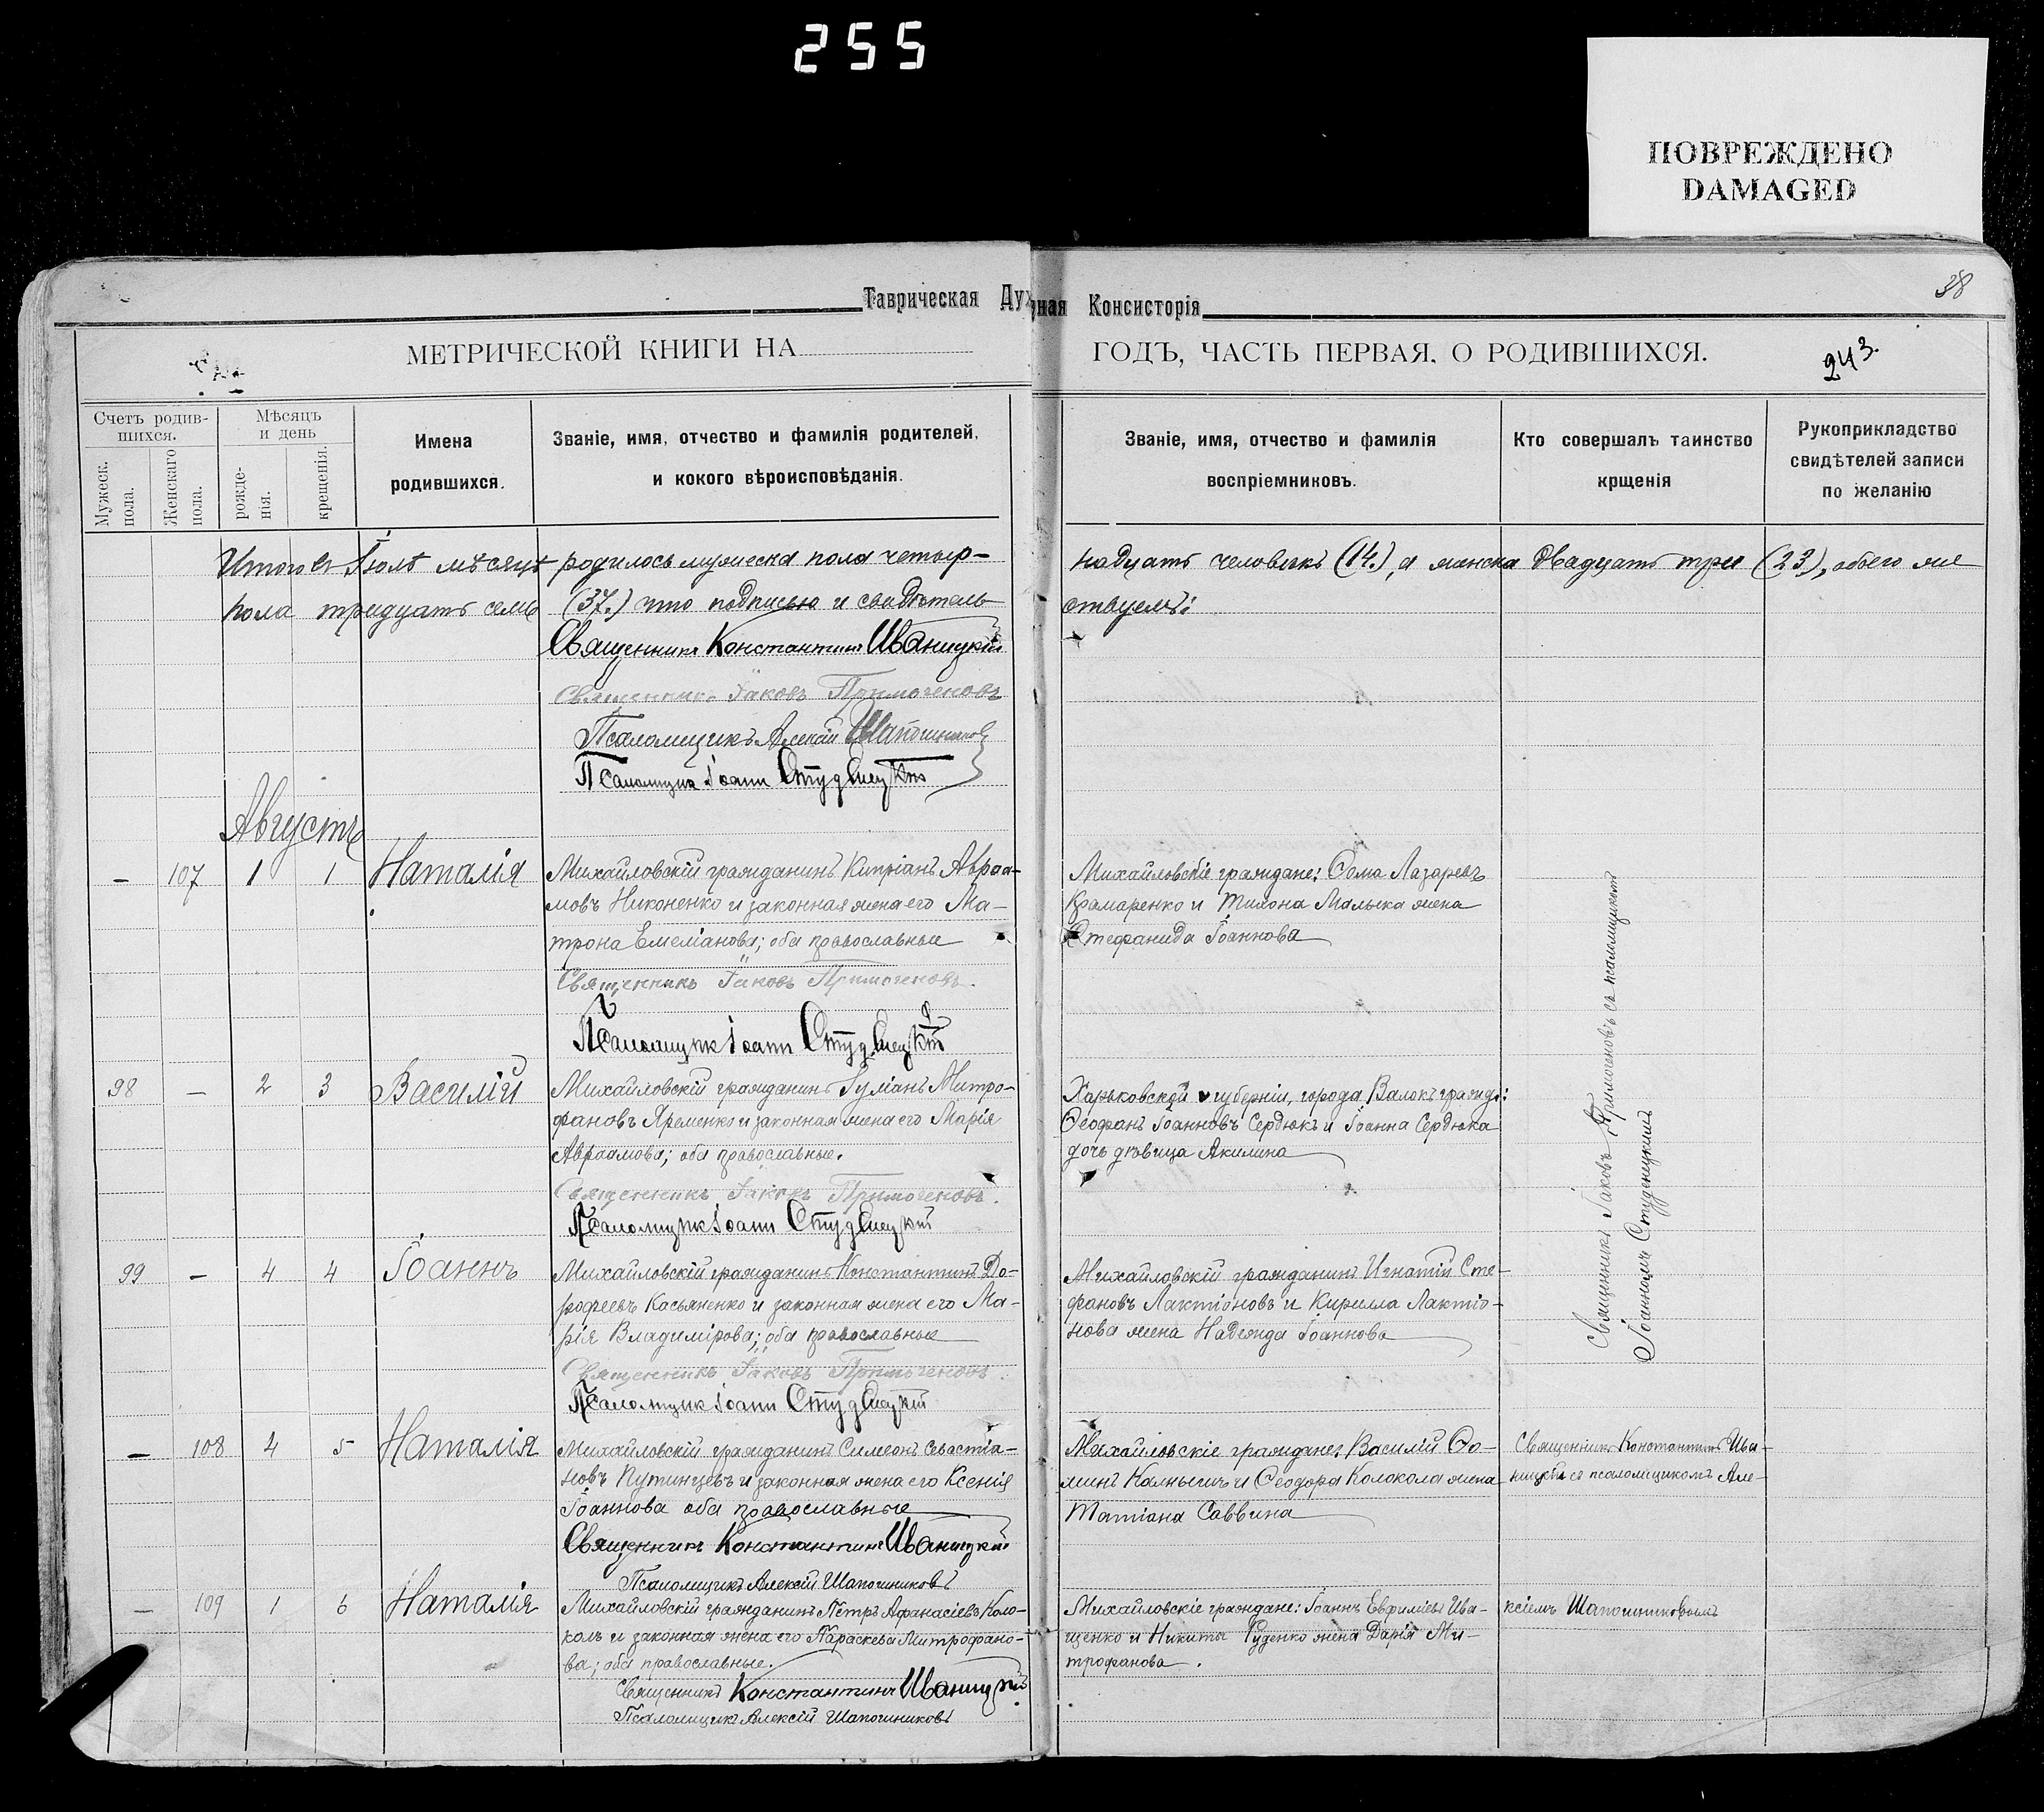 255
ПОВРЕЖДЕНО
DAMAGED
38
Таврическая Духовная Консисторія
МЕТРИЧЕСКОЙ КНИГИ НА
ГОДЪ, ЧАСТЬ ПЕРВАЯ, О РОДИВШИХСЯ.
243.
Счетъ родив-
шихся.
Мужеск. пола.
Женскаго пола.
Мѣсяцъ
и день
рожде-
нія.
крещенія.
Имена
родившихся.
Званіе, имя, отчество и фамилія родителей,
и кокого вѣроисповѣданія.
Званіе, имя, отчество и фамилія
воспріемниковъ.
Кто совершалъ таинство
крщенія
Рукоприкладство
свидѣтелей записи
по желанію
Итого въ Іюлѣ мѣсяцѣ родилось мужеска пола четыр-
надцать человѣкъ (14.), а женска двадцать три (23.), обоего же
пола тридцать семь (37.) что подписью и свидѣтель-
ствуемъ:
Священникъ Константинъ Иваницкій
Священникъ Іаковъ Примогеновъ
Псаломщикъ Алексій Шапошниковъ
Псаломщикъ Іоаннъ Студенецкій
Августъ
— 107 1 1 Наталія
Михайловскій гражданинъ Кипріанъ Авраа-
мовъ Никоненко и законная жена его Ма-
трона Емеліанова; оба православные
Священникъ Іаковъ Примогеновъ.
Псаломщикъ Іоаннъ Студенецкій
Михайловскіе граждане: Ѳома Лазаревъ
Крамаренко и Тихона Малыка жена
Стефанида Іоаннова
Священникъ Іаковъ Примогеновъ съ псаломщикомъ
Іоанномъ Студенецкимъ
98 — 2 3 Василій
Михайловскій гражданинъ Іуліанъ Митро-
фановъ Яременко и законная жена его Марія
Авраамова; оба православные.
Священникъ Іаковъ Примогеновъ.
Псаломщикъ Іоаннъ Студенецкій
Харьковской губерніи, города Валокъ гражд:
Ѳеофанъ Іоанновъ Сердюкъ и Іоанна Сердюка
дочь дѣвица Акилина
99 — 4 4 Іоаннъ
Михайловскій гражданинъ Константинъ До-
рофеевъ Касьяненко и законная жена его Ма-
рія Владимірова; оба православные
Священникъ Іаковъ Примогеновъ.
Псаломщикъ Іоаннъ Студенецкій
Михайловскій гражданинъ Игнатій Сте-
фановъ Лактіоновъ и Кирилла Лактіо-
нова жена Надежда Іоаннова
— 108 4 5 Наталія
Михайловскій гражданинъ Симеонъ Севастіа-
новъ Путинцевъ и законная жена его Ксенія
Іоаннова оба православные
Священникъ Константинъ Иваницкій
Псаломщикъ Алексій Шапошниковъ
Михайловскіе граждане: Василій Ѳо-
минъ Калнышъ и Ѳеодора Колокола жена
Татіана Саввина
Священникъ Константинъ Ива-
ницкій съ псаломщикомъ Але-
— 109 1 6 Наталія
Михайловскій гражданинъ Петръ Афанасіевъ Коло-
колъ и законная жена его Параскева Митрофано-
ва; оба православные.
Священникъ Константинъ Иваницкій
Псаломщикъ Алексій Шапошниковъ
Михайловскіе граждане: Іоаннъ Евфиміевъ Ива-
щенко и Никиты Руденко жена Дарія Ми-
трофанова.
ксіемъ Шапошниковымъ